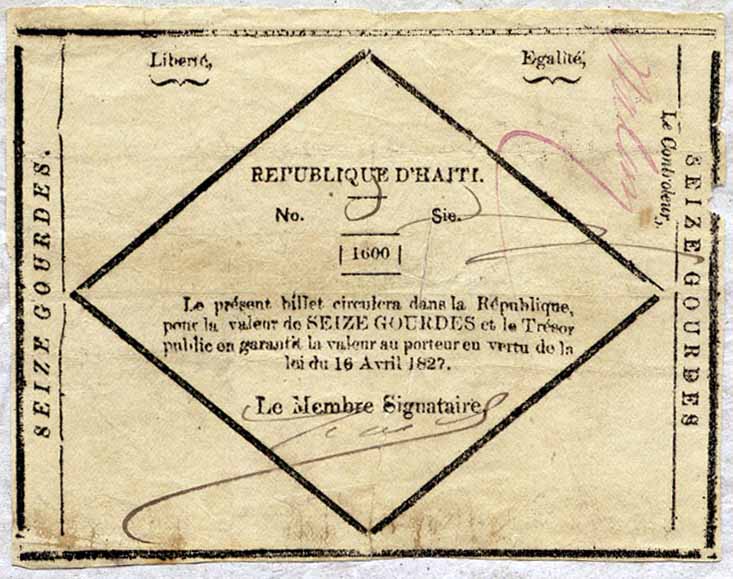 Liberté,
Egalité,
SEIZE GOURDES.
REPUBLIQUE D'HAITI.
No. Sie.
1600
Le présent billet circulera dans la République,
pour la valeur de SEIZE GOURDES et le Trésor
public en garantit la valeur au porteur en vertu de la
loi du 16 Avril 1827.
Le Membre Signataire
Le Controleur,
SEIZE GOURDES